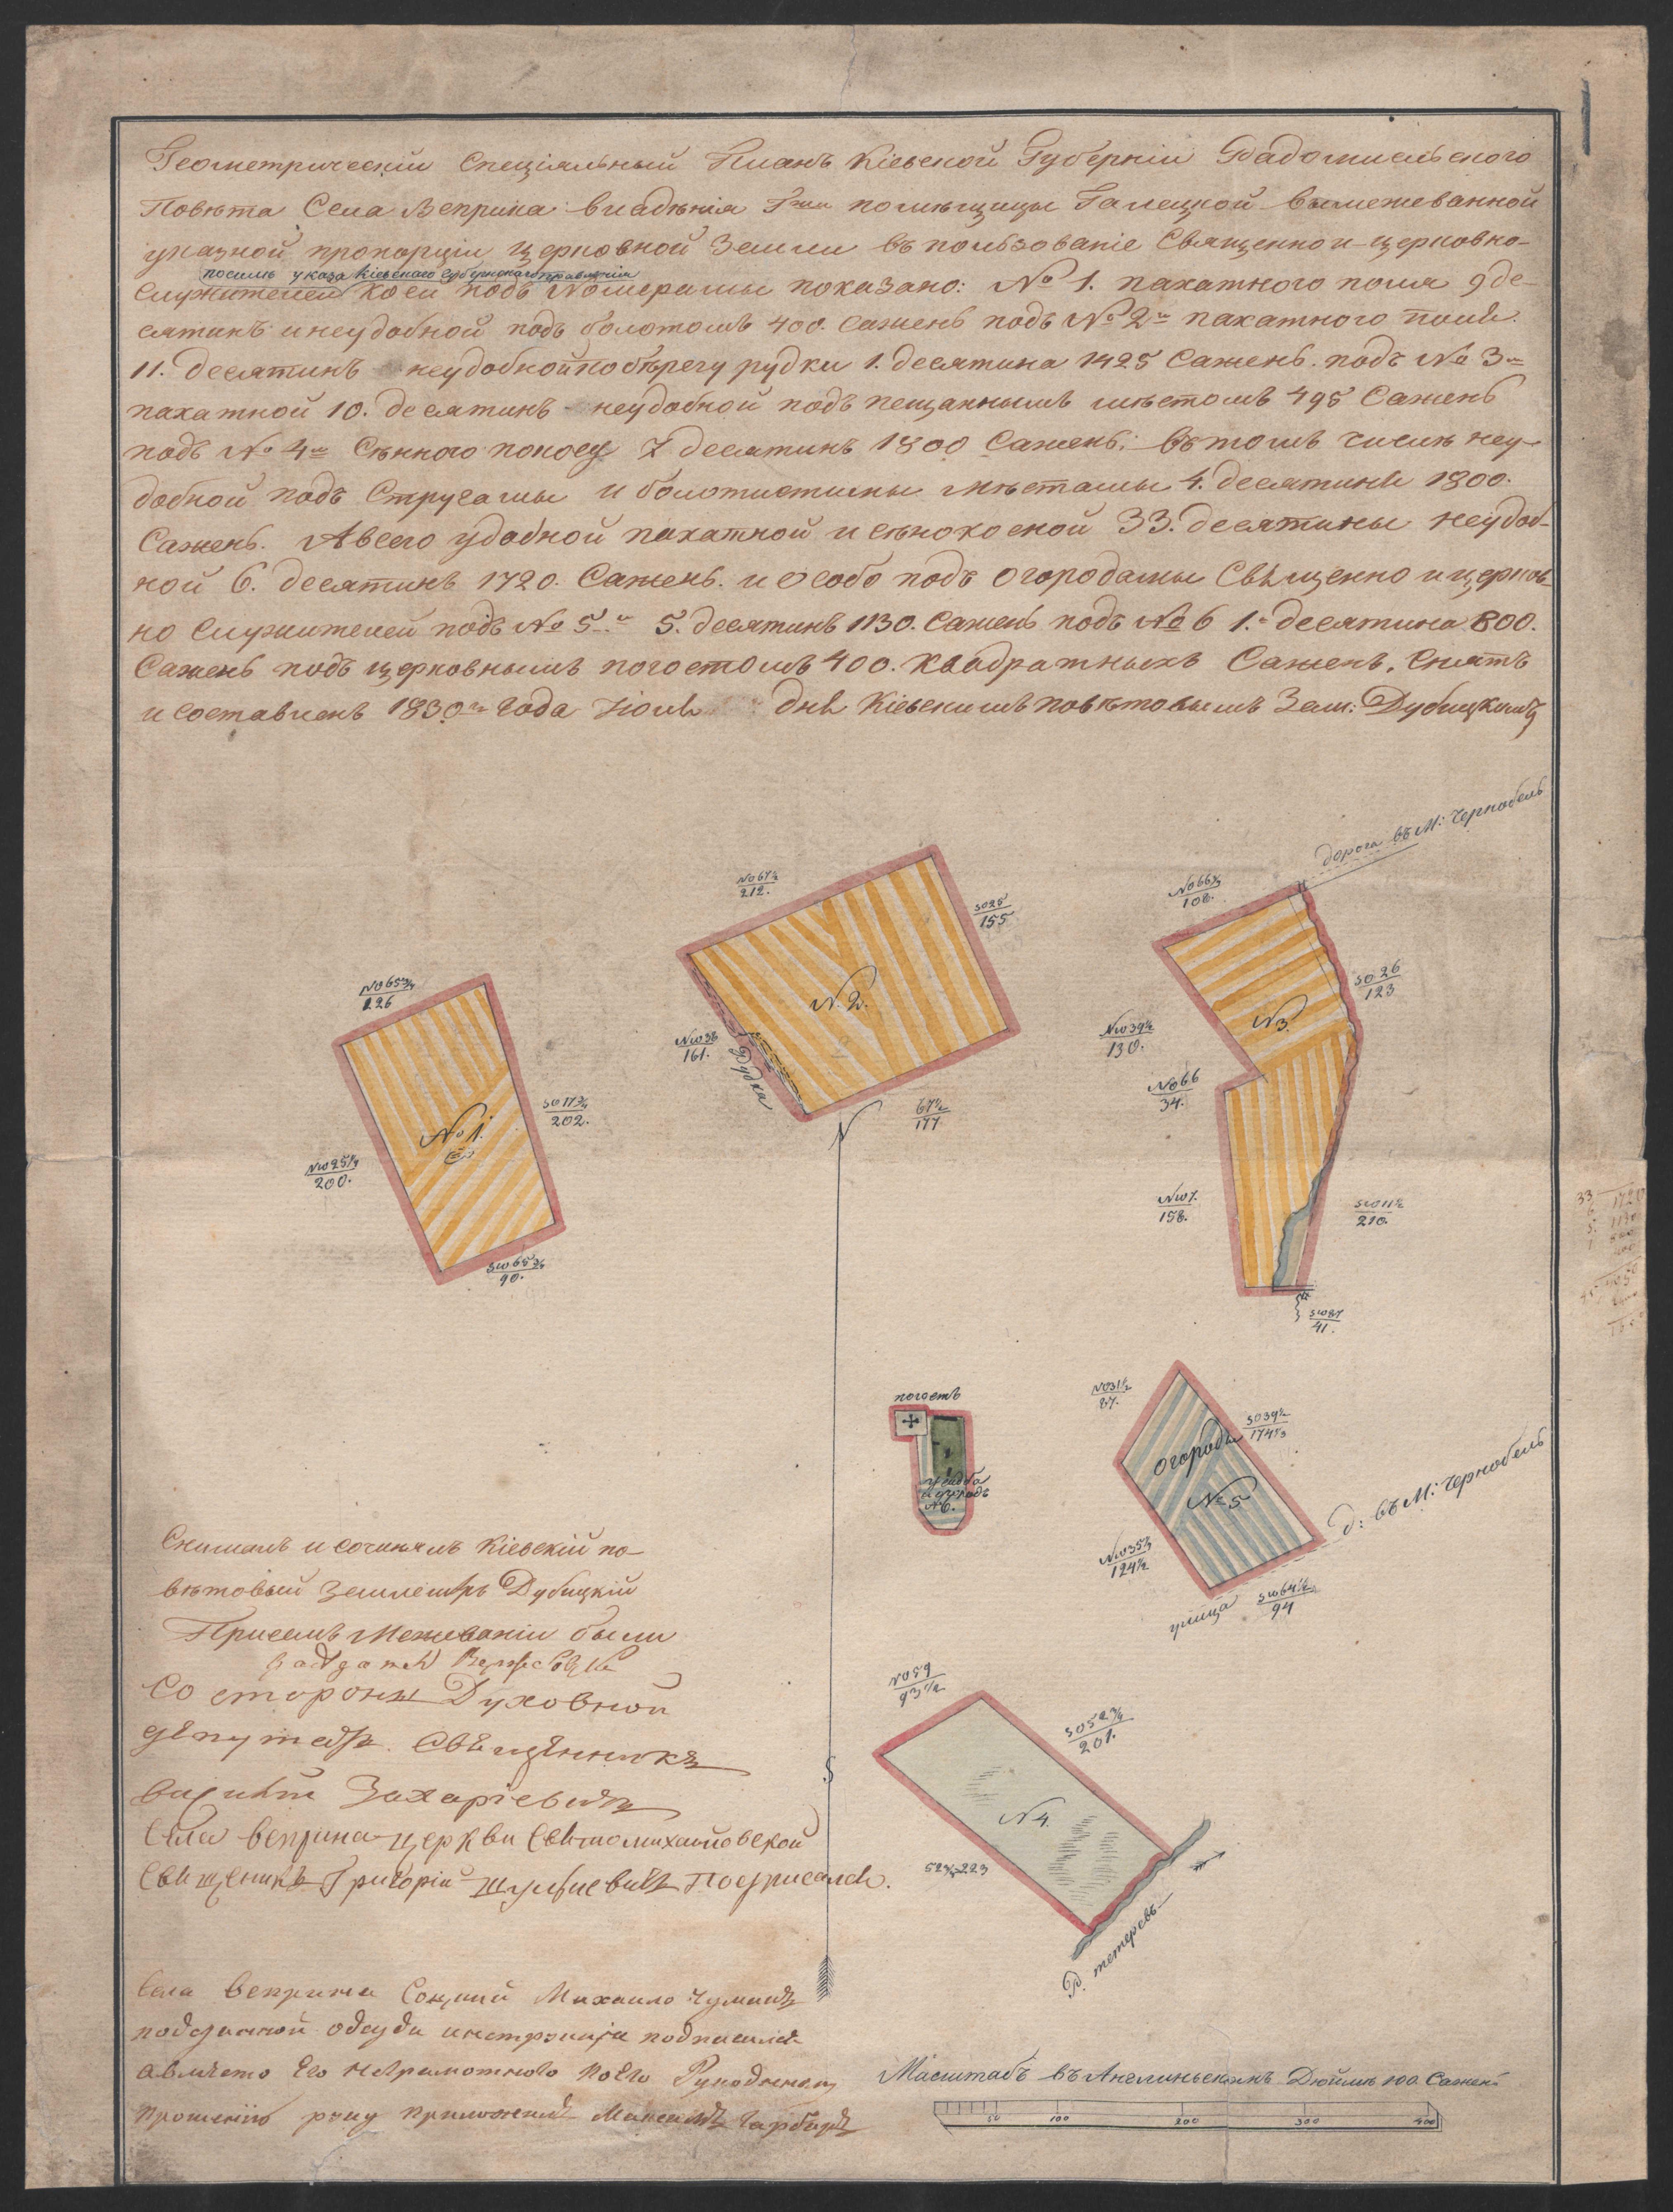 Геометрический Спеціяльный Планъ Кіевской Губерніи Радомысльского
Повѣта Села Веприна владѣнія Гжи помѣщицы Галецкой вымежеванной
указной пропорціи церковной Земли въ пользованіе Священно и церковно-
посилѣ указа Кіевскаго Губернскаго правленія
служителей коей подъ Номерамы показано: № 1. пахатного поля 9 де-
сятинъ и неудобной подъ болотомъ 400. Сажень подъ № 2м пахатного поля.
11. Десятинъ неудобной по бѣрегу рудки 1. десятина 1425 Сажень. подъ № 3м
пахатной 10. десятинъ неудобной подъ пещаннымъ мѣстомъ 495 Сажень
подъ № 4м Сѣнного покосу 7 десятинъ 1800 Сажень; въ томъ числѣ неу-
добной подъ Стругамы и болотистымы мѣстамы 4. десятины 1800.
Сажень. А всего удобной пахатной и сѣнокосной 33. десятины неудоб-
ной 6. десятинъ 1720. Сажень. и особо подъ огородамы Священно и церков-
но служителей подъ № 5м 5. десятинъ 1130. Сажень подъ № 6 1. десятина 800.
Сажень подъ церковнымъ погостомъ 400. квадратныхъ Сажень. Снятъ
и составленъ 1830го года Іюля дня Кіевскимъ повѣтовымъ Зем: Дубицкимъ
дорога въ М: Чернобель
NO 67½
212.
SO 25
155
NO 66½
108.
NO 65¾
126
SO 26
123
N. 2.
N 3.
NW 38
161.
Рудка
NW 39½
130.
NO 66
34.
SO 17¾
202.
67½
177
№ 1.
N
NW 25¼
200.
NW 7.
158.
SW 11½
210.
SW 65¾
90.
SW 87
41.
погостъ
NO 31½
87.
SO 39½
174⅓
огороды
№ 5
усадба
N 6.
д: въ М: Чернобель
NW 35½
124½
SW 64½
94
улица
Снималъ и сочинялъ Кіевскій по-
вѣтовый Землемѣръ Дубицкій
При семъ Межеваніи были
Со стороны Духовной
депутатъ. Священникъ
Василій Захаріевичъ
Села Веприна церкви Свято михайловской
Священникъ Григорій Шулькевичъ Подписался.
NO 59
93½
SO 52¾
201.
N 4.
52¾ 223
S
Р. тетеревъ
Села Веприна Соцкий Михайло Чумакъ
подписался
А вмѣсто Его неграмотного по Его Рукоданному
прошенію руку приложилъ Максимъ Гарбаръ
Масштабъ въ Англиньскомъ Дюймѣ 100 Сажень
50 100 200 300 400